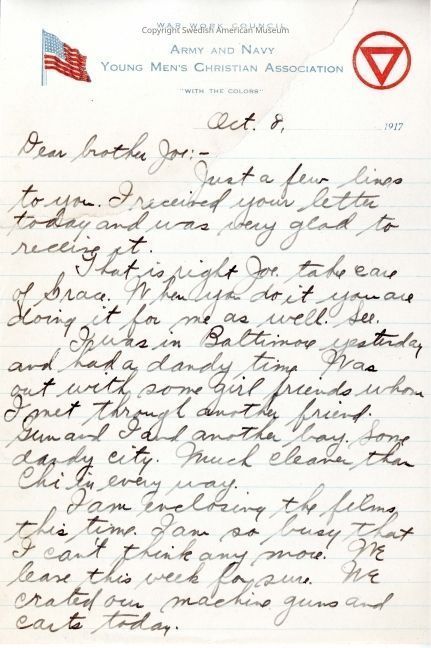 WAR WORK COUNCIL
Copyright Swedish American Museum
ARMY AND NAVY
YOUNG MEN'S CHRISTIAN ASSOCIATION
"WITH THE COLORS"
Oct. 8, 1917
Dear brother Joe:-
Just a few lines
to you. I received your letter
today and was very glad to
receive it.
That is right Joe take care
of Grace. When you do it you are
doing it for me as well. See.
I was in Baltimore yesterday
and had a dandy time. Was
out with some girl friends whom
I met through another friend.
Gun and I and another boy. Some
dandy city. Much cleaner than
Chi in every way.
I am enclosing the films
this time. I am so busy that
I can't think any more. We
leave this week for sure. We
crated our machine guns and
carts today.